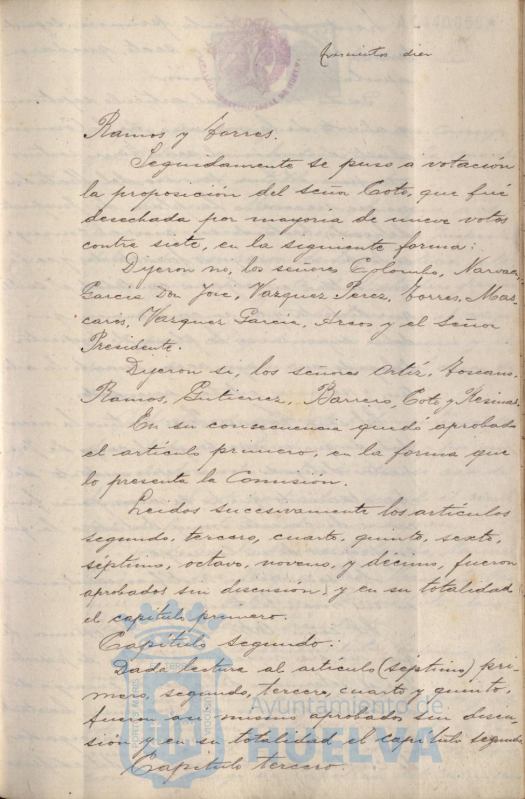 trescientos diez
Ramos y Torres.
Seguidamente se puso a votación
la proposición del señor Coto, que fué
desechada por mayoria de nueve votos
contra siete, en la siguiente forma:
Dijeron no, los señores Colombo, Narvaez
Garcia Don José, Vazquez Perez, Torres, Mas-
carós, Vazquez Garcia, Arcos y el Señor
Presidente.
Dijeron si, los señores Ortíz, Toscano,
Ramos, Gutierrez, Barrero, Coto y
En su consecuencia quedó aprobado
el artículo primero, en la forma que
lo presenta la Comisión.
Leidos sucesivamente los artículos
segundo, tercero, cuarto, quinto, sexto,
séptimo, octavo, noveno, y décimo, fueron
aprobados sin discusión; y en su totalidad
el capítulo primero.
Capítulo segundo:
Dada lectura al artículo (séptimo) pri-
mero, segundo, tercero, cuarto y quinto,
fueron asi mismo aprobados sin discu-
sión y en su totalidad el capítulo segundo
Capítulo tercero.
Ayuntamiento de
HUELVA